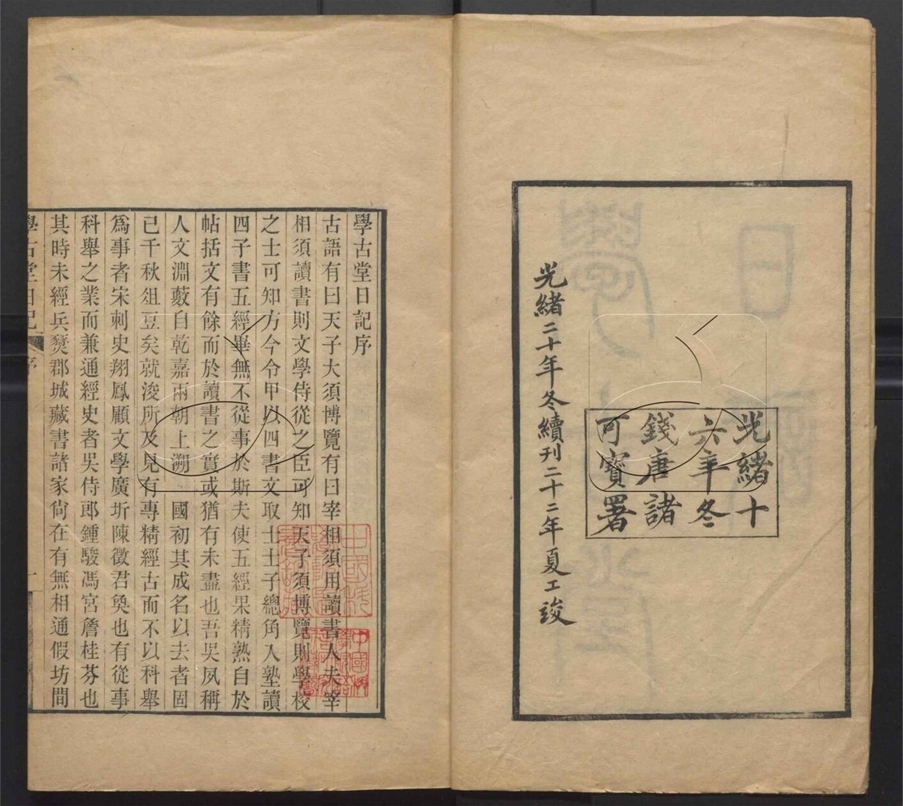 光緒十
六年冬
錢唐諸
可寶署
光緒二十年冬續刊二十二年夏工竣
學古堂日記序
古語有曰天子大須博覽有曰宰相須用讀書人夫宰
相須讀書則文學侍從之臣可知天子須博覽則學校
之士可知方今令甲以四書文取士士子總角入塾讀
四子書五經畢無不從事於斯夫使五經果精熟自於
帖括文有餘而於讀書之實或猶有未盡也吾吳夙稱
人文淵藪自乾嘉兩朝上溯 國初其成名以去者固
已千秋俎豆矣就浚所及見有專精經古而不以科舉
爲事者宋刺史翔鳳顧文學廣圻陳徵君奐也有從事
科舉之業而兼通經史者吳侍郎鍾駿馮宮詹桂芬也
其時未經兵燹郡城藏書諸家尙在有無相通假坊間
學古堂日記 序 一